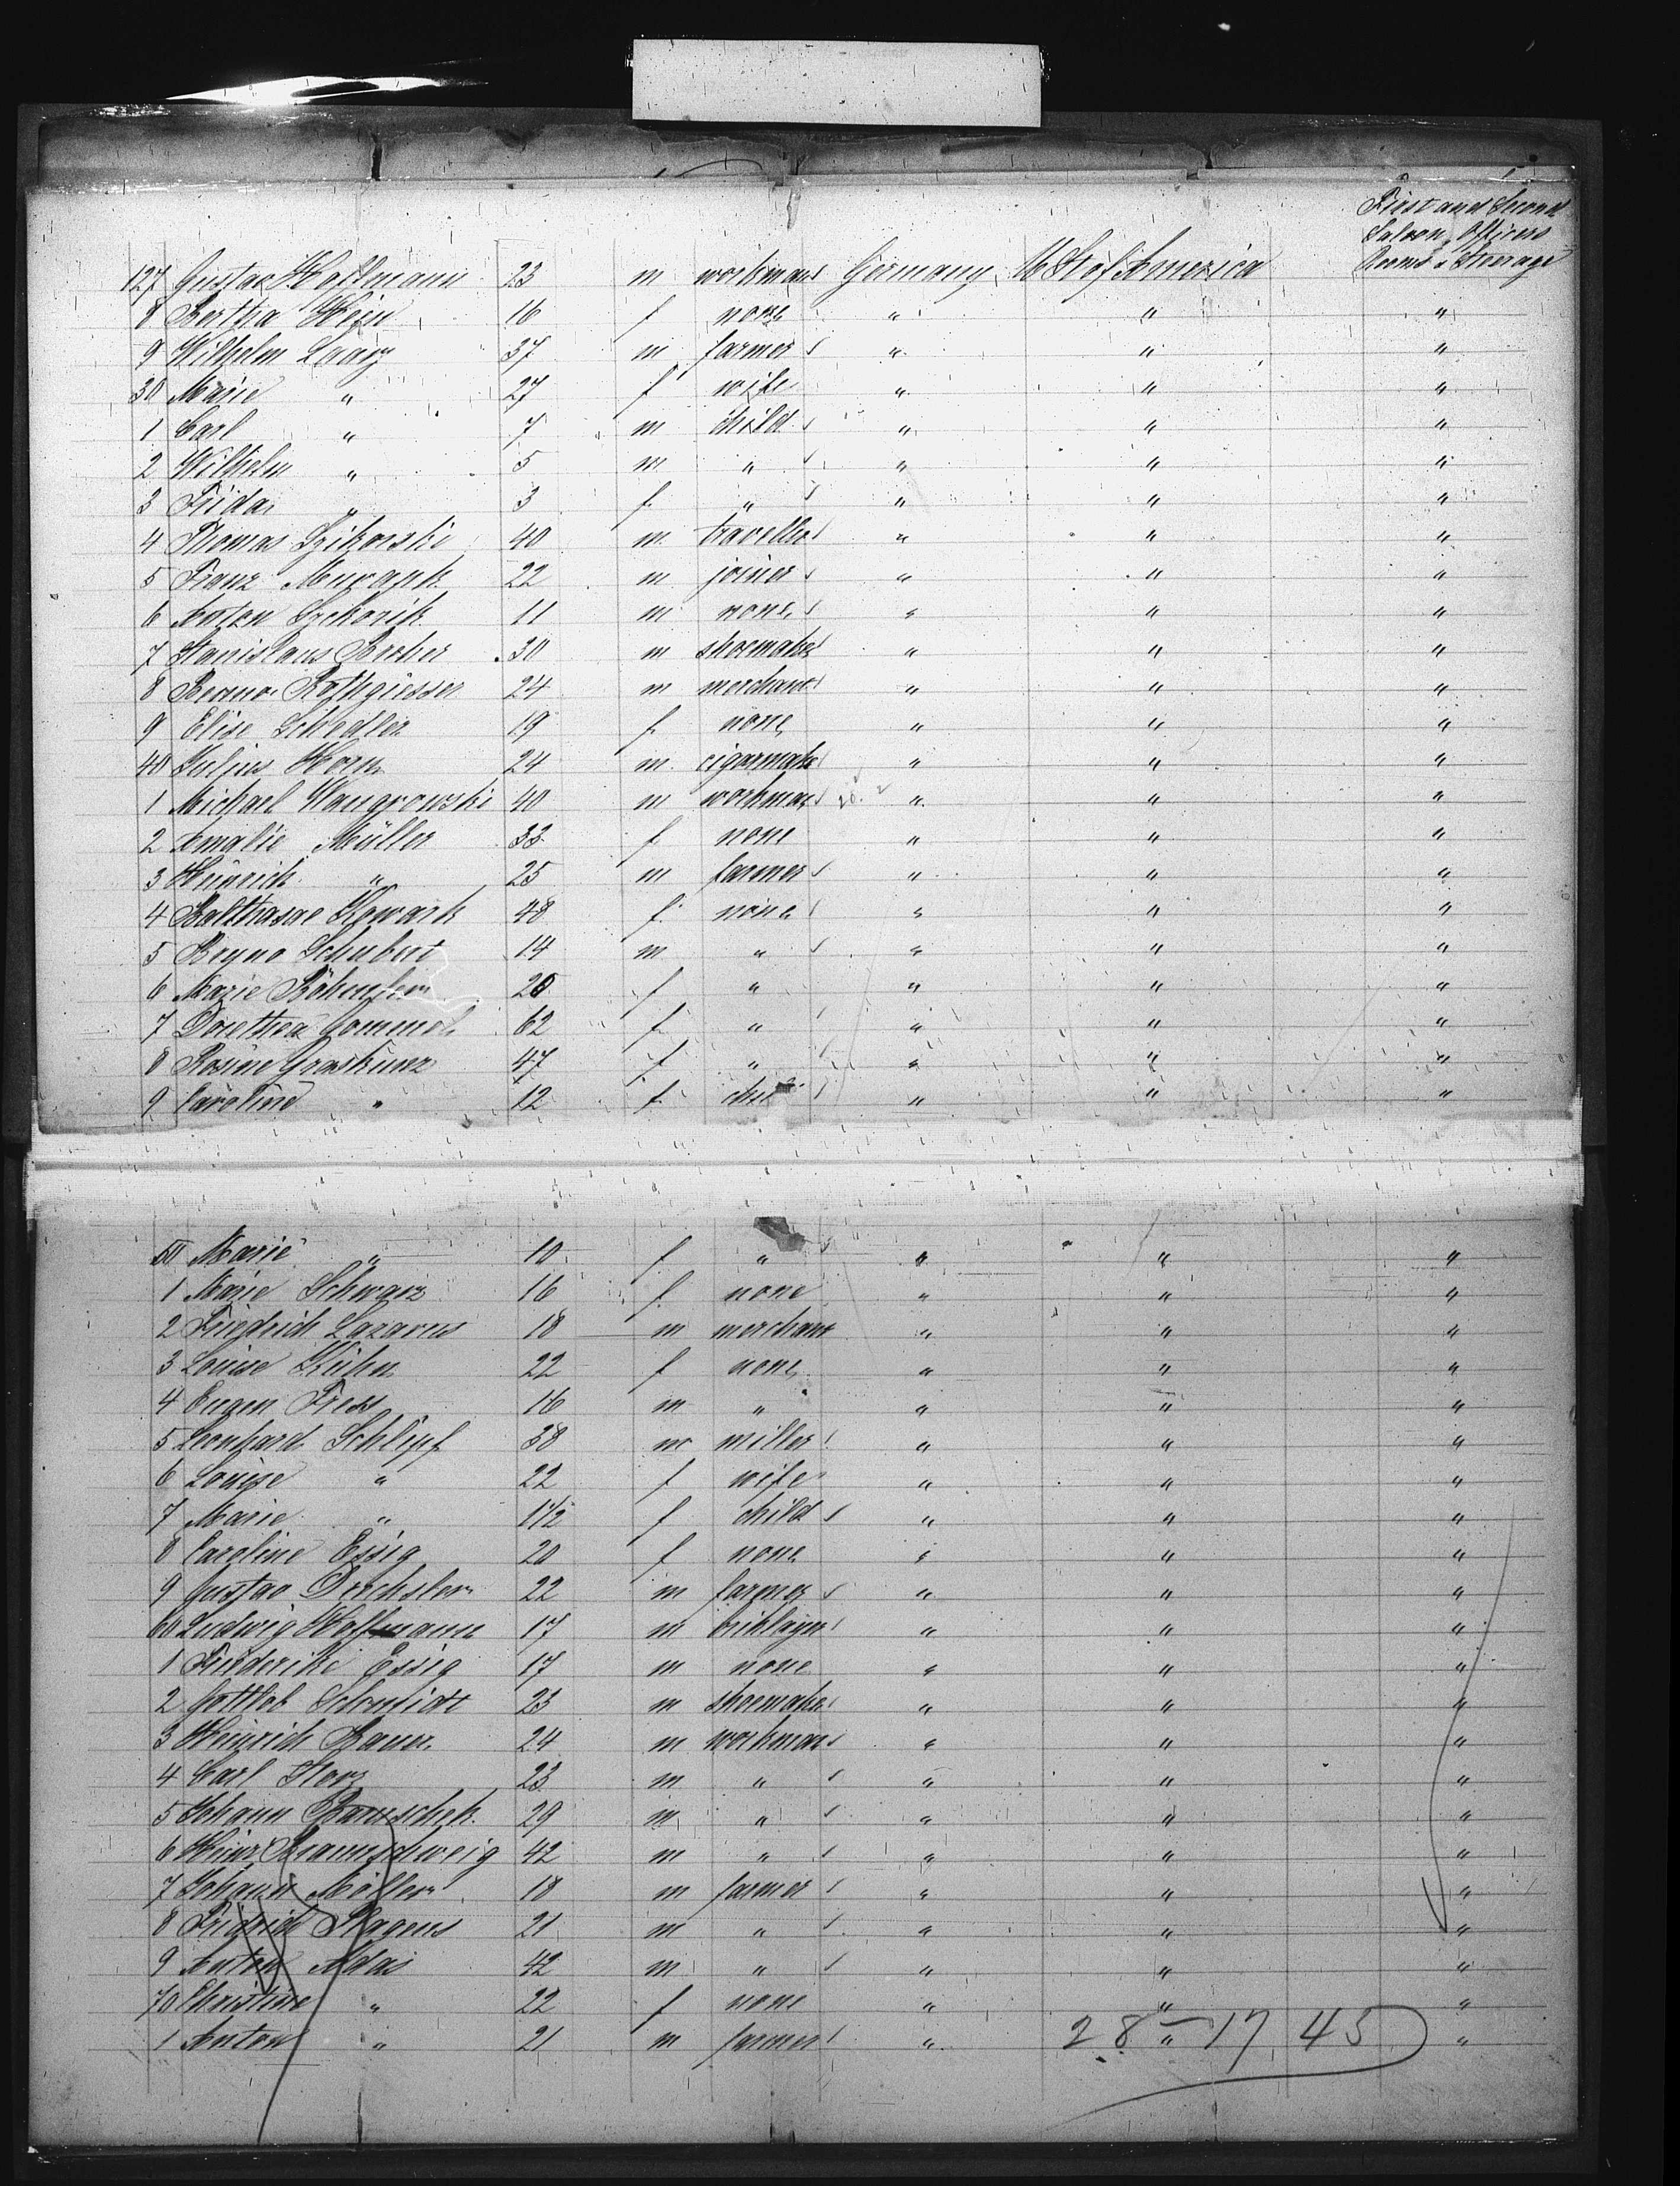 First and Second
Saloon, Officers
127 Gustav Hoffmann 23 m workman Germany U St of America Rooms & Steerage
8 Bertha Hein 16 f none " " "
9 Wilhelm Laarz 37 m farmer " " "
30 Marie " 27 f wife " " "
1 Carl " 7 m child " " "
2 Wilhelm " 5 m " " " "
3 Frida " 3 f " " " "
4 Thomas Szikorski 40 m traveller " " "
5 Franz 22 m joiner " " "
6 Anton 11 m none " " "
7 Stanislaus 30 m shoemaker " " "
8 Benno Rothgiesser 24 m merchant " " "
9 Elise Schedler 19 f none " " "
40 Julius Horn 24 m cigarmaker " " "
1 Michael Wangrowski 40 m workman " " "
2 Amalie Müller 33 f none " " "
3 Heinrich " 25 m farmer " " "
4 Balthasar 48 f none " " "
5 Bruno Schubert 14 m " " " "
6 Marie 20 f " " " "
7 Dorothea Gommel 62 f " " " "
8 Rosine 47 f " " " "
9 Caroline " 12 f child " " "
50 Marie " 10 f " " " "
1 Marie Schwarz 16 f none " " "
2 Friedrich Lazarus 18 m merchant " " "
3 Louise Kühn 22 f none " " "
4 Eugen Fress 16 m " " " "
5 Leonhard Schlipf 38 m miller " " "
6 Louise " 22 f wife " " "
7 Marie " 1 1/2 f child " " "
8 Caroline Essig 20 f none " " "
9 Gustav Drechsler 22 m farmer " " "
60 Ludwig Hoffmann 17 m briklayer " " "
1 Friederike Essig 17 m none " " "
2 Gottlob Schmidt 23 m shoemaker " " "
3 Heinrich Bauer 24 m workman " " "
4 Carl Storz 23 m " " " "
5 Johann 29 m " " " "
6 Heinr Braunschweig 42 m " " " "
7 Johann Möller 18 m farmer " " "
8 Fridrich Hagens 21 m " " " "
9 Anton Adas 42 m " " " "
70 Christine " 22 f none " " "
1 Anton " 21 m farmer " " "
28 - 17 45